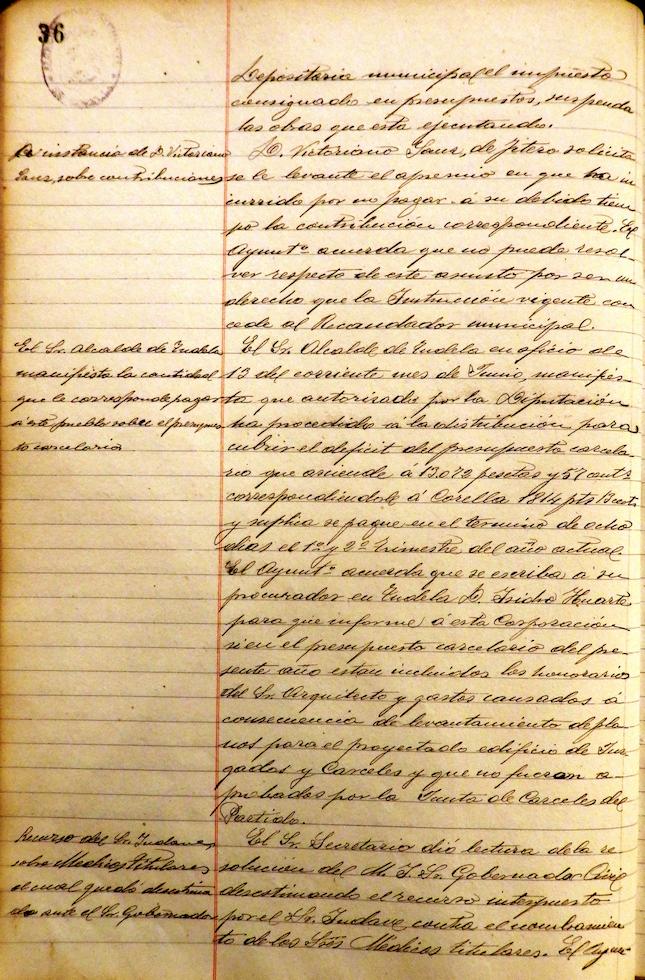 36
Depositaria municipal el impuesto
consignado en presupuestos, suspenda
las obras que esta ejecutando.
A instancia de D. Victoriano
Sanz, sobre contribuciones
D. Victoriano Sanz, de Jetero solicita
se le levante el apremio en que ha in
currido por no pagar á su debido tiem
po la contribución correspondiente. El
Ayuntº acuerda que no puede resol-
ver respecto de este asunto por ser un
derecho que la Instrucción vigente con
cede al Recaudador municipal.
El Sr. Alcalde de Tudela
manifiesta la cantidad
que le corresponde pagar
á este pueblo sobre el presupues
to carcelario
El Sr. Alcalde de Tudela en oficio de
13 del corriente mes de Junio, manifies-
ta que autorizado por la Diputación
ha procedido á la distribución para
cubrir el deficit del presupuesto carcela-
rio que asciende á 13.072 pesetas y 57 cents
correspondiendole á Corella 1814 pts 13 cents
y suplica se pague en el termino de ocho
dias el 1º y 2º trimestre del año actual
El Ayuntº acuerda que se escriba á su
procurador en Tudela D. Isidro Huarte
para que informe á esta Corporación
si en el presupuesto carcelario del pre-
sente año estan incluidos los honorarios
del Sr. Arquitecto y gastos causados á
consecuencia de levantamiento de pla-
nos para el proyectado edificio de Juz-
gados y Carceles y que no fueran a-
probados por la Junta de Carceles del
Partido.
Recurso del Sr. Indave
sobre Medicos titulares
el cual quedó desestima
do ante el Sr. Gobernador
El Sr. Secretario dió lectura de la re-
solución del M. I. Sr. Gobernador Civil
desestimando el recurso interpuesto
por el Sr. Indave contra el nombramien
to de los Srs Medicos titulares. El Ayun-